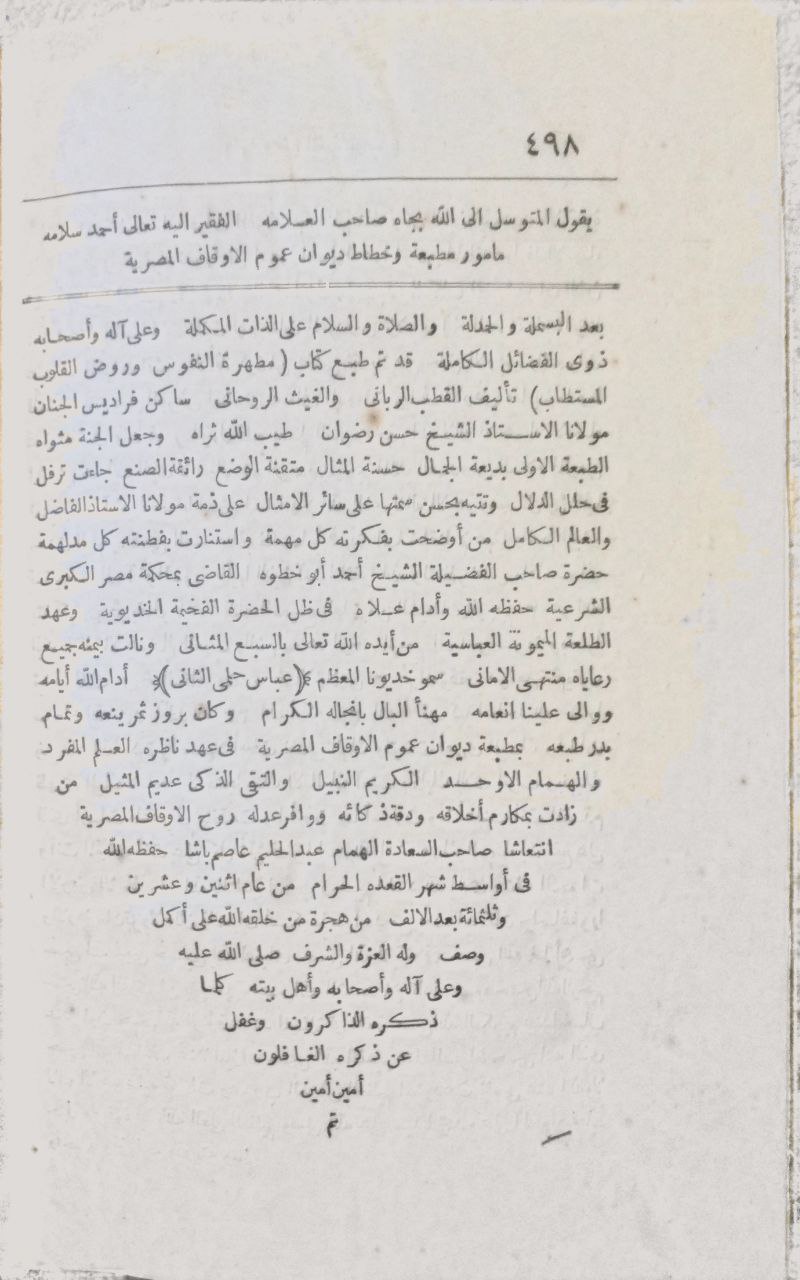 ٤٩٨
يقول المتوسل الى الله بجاه صاحب العـلامه الفقير اليه تعالى أحمد سلامه
مامور مطبعة وخطاط ديوان عموم الاوقاف المصرية
بعد البسملة والحمدلة والصلاة والسلام على الذات المكملة وعلى آله وأصحابه
ذوى الفضائل الكاملة قد تم طبع كتاب (مطهرة النفوس وروض القلوب
المستطاب) تأليف القطب الربانى والغيث الروحانى ساكن فراديس الجنان
مولانا الاستاذ الشيخ حسن رضوان طيب الله ثراه وجعل الجنة مثواه
الطبعة الاولى بديعة الجمال حسنة المثال متقنة الوضع رائقة الصنع جاءت ترفل
فى حلل الدلال وتتيه بحسن سمتها على سائر الامثال على ذمة مولانا الاستاذ الفاضل
والعالم الكامل من أوضحت بفكرته كل مهمة واستنارت بفطنته كل مدلهمة
حضرة صاحب الفضيلة الشيخ أحمد أبو خطوه القاضى بمحكمة مصر الكبرى
الشرعية حفظه الله وأدام عـلاه فى ظل الحضرة الفخيمة الخديوية وعهد
الطلعة الميمونة العباسية من أيده الله تعالى بالسبع المثانى ونالت بيمنه جميع
رعاياه منتهى الامانى سمو خديونا المعظم (عباس حلمى الثانى) أدام الله أيامه
ووالى علينا انعامه مهنأ البال بانجاله الكرام وكان بروز ثمر ينعه وتمام
بدر طبعه بمطبعة ديوان عموم الاوقاف المصرية فى عهد ناظره العلم المفرد
والهمام الاوحد الكريم النبيل والتقى الذكى عديم المثيل من
زادت بمكارم أخلاقه ودقة ذكائه ووافر عدله روح الاوقاف المصرية
انتعاشا صاحب السعادة الهمام عبد الحليم عاصم باشا حفظه الله
فى أواسط شهر القعده الحرام من عام اثنين وعشرين
وثلثمائة بعد الالف من هجرة من خلقه الله على أكمل
وصف وله العزة والشرف صلى الله عليه
وعلى آله وأصحابه وأهل بيته كلما
ذكره الذاكرون وغفل
عن ذكره الغافلون
أمين أمين
تم